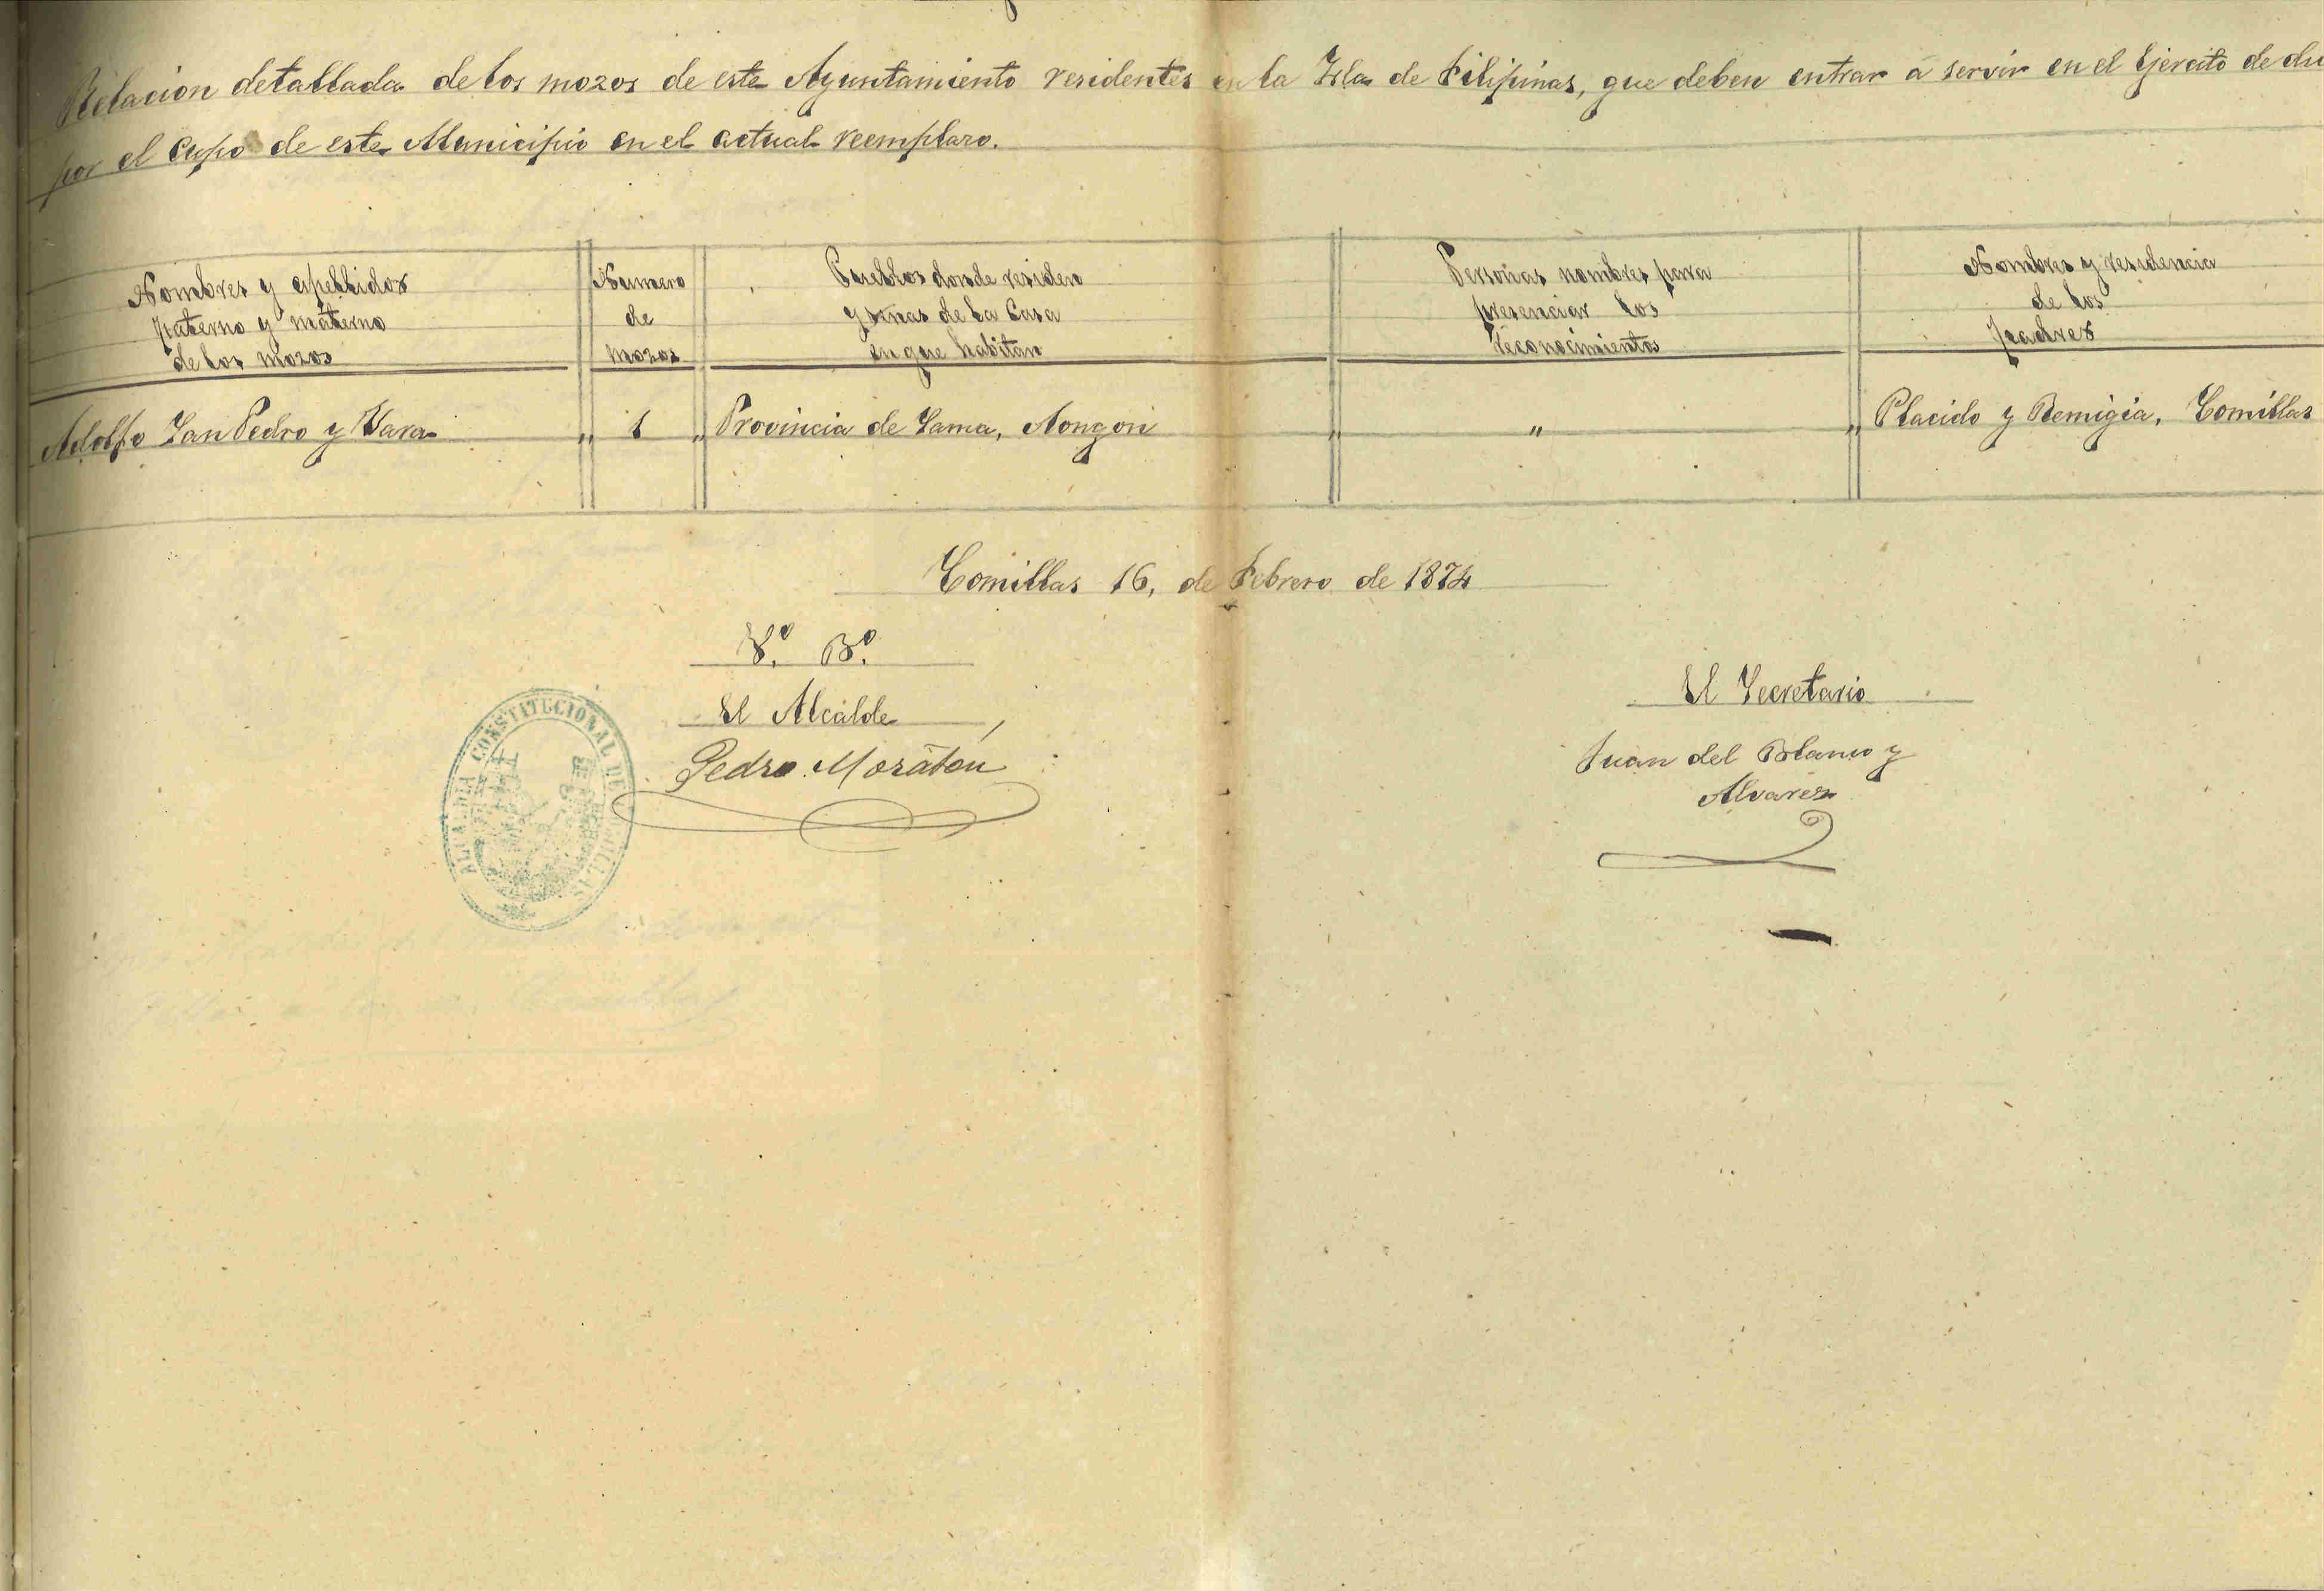 Relacion detallada de los mozos de este Ayuntamiento residentes en la Isla de Filipinas, que deben entrar á servir en el Ejercito de
por el cupo de este Municipio en el actual reemplazo.
Nombres y apellidos
paterno y materno
de los mozos
Numero
de
mozos
Pueblos donde residen
y señas de la Casa
en que habitan
Personas nombres para
presenciar los
reconocimientos
Nombres y residencia
de los
padres
Adolfo San Pedro y Vara " 1 " Provincia de Sama, Nongon " " " Placido y Remigia, Comillas
Comillas 16, de Febrero de 1874
V.º B.º
El Alcalde
Pedro Moratón
ALCALDIA CONSTITUCIONAL DE COMILLAS
El Secretario
Juan del Blanco y
Alvarez